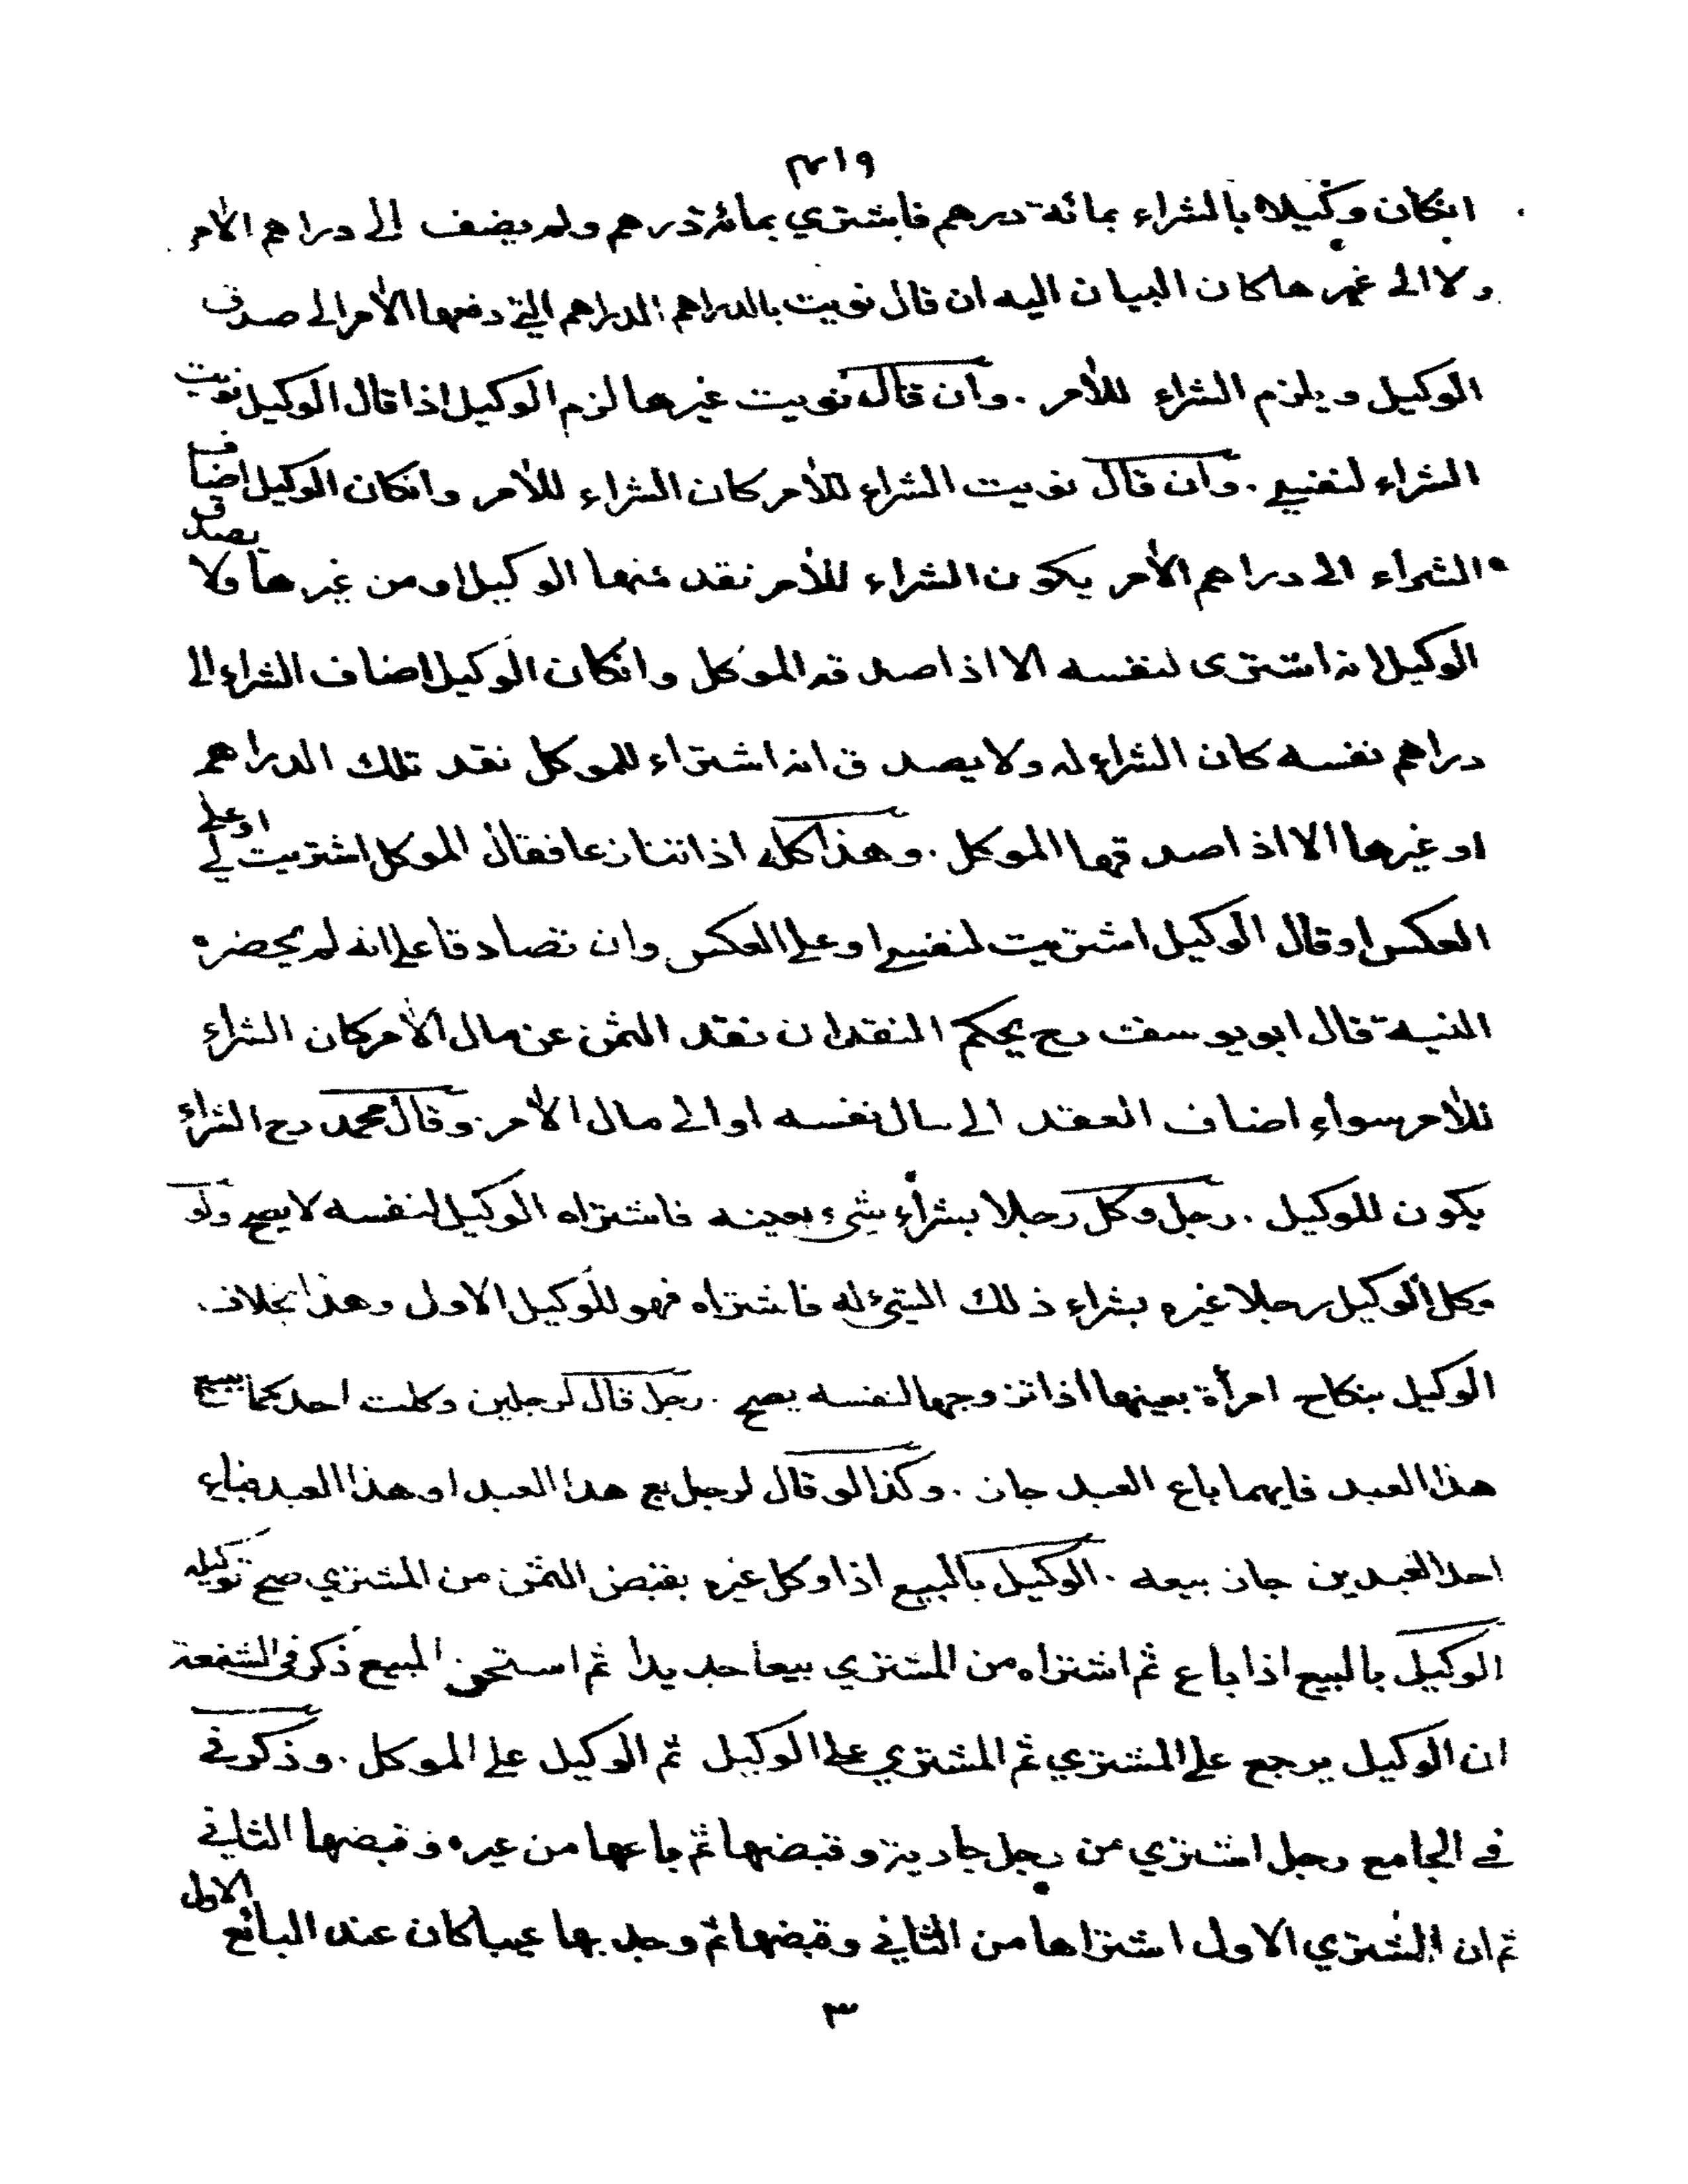 ٩١٣
انكان وكيلا بالشراء بمائة درهم فاشتري بمائة درهم ولم يضف الى دراهم الآمر
ولا الى غيرها كان البيان اليه ان قال نويت بالدراهم الدراهم التي دفعها الآمر الى صدق
الوكيل ويلزم الشراء للآمر . وان قال نويت غيرها لزم الوكيل اذا قال الوكيل نويت
الشراء لنفسي . وان قال نويت الشراء للآمر كان الشراء للآمر وانكان الوكيل اضاف
الشراء الى دراهم الآمر يكون الشراء للآمر نقد منها الوكيل او من غيرها ولا يصدق
الوكيل انه اشترى لنفسه الا اذا صدقه الموكل وانكان الوكيل اضاف الشراء الى
دراهم نفسه كان الشراء له ولا يصدق انه اشتراء للموكل نقد تلك الدراهم
او غيرها الا اذا صدقها الموكل . وهذا كله اذا تنازعا فقال الموكل اشتريت لي او على
العكس او قال الوكيل اشتريت لنفسي او على العكس وان تصادقا على انه لم يحضره
النية قال ابو يوسف رح يحكم النقد ان نقد الثمن عن مال الآمر كان الشراء
للآمر سواء اضاف العقد الى مال نفسه او الى مال الآمر . وقال محمد رح الشراء
يكون للوكيل . رجل وكل رجلا بشراء شيء بعينه فاشتراه الوكيل لنفسه لا يصح ولو
وكل الوكيل رجلا غيره بشراء ذلك الشيء له فاشتراه فهو للوكيل الاول وهذا بخلاف
الوكيل بنكاح امرأة بعينها اذا تزوجها لنفسه يصح . رجل قال لرجلين وكلت احدكما ببيع
هذا العبد فايهما باع العبد جاز . وكذا لو قال لرجل بع هذا العبد او هذا العبد فباع
احد العبدين جاز بيعه . الوكيل بالبيع اذا وكل غيره بقبض الثمن من المشتري صح توكيله
الوكيل بالبيع اذا باع ثم اشتراه من المشتري بيعا جديدا ثم استحق المبيع ذكر في الشفعة
ان الوكيل يرجع على المشتري ثم المشتري على الوكيل ثم الوكيل على الموكل . وذكر في
في الجامع رجل اشتري من رجل جارية وقبضها ثم باعها من غيره وقبضها الثاني
ثم ان المشتري الاول اشتراها من الثاني وقبضها ثم وجد بها عيبا كان عند البائع الاول
٣